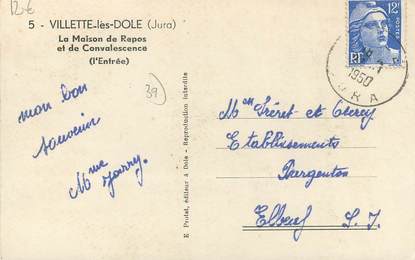 12€
5 - VILLETTE-lès-DOLE (Jura)
La Maison de Repos
et de Convalescence
(l'Entrée)
39
mon bon
souvenir
Mme Jarry.
E. Protet, éditeur à Dole - Reproduction interdite
12F
POSTES
RF
1950
JURA
Mrs Fréret et
Etablissements
Elbeuf S. I.